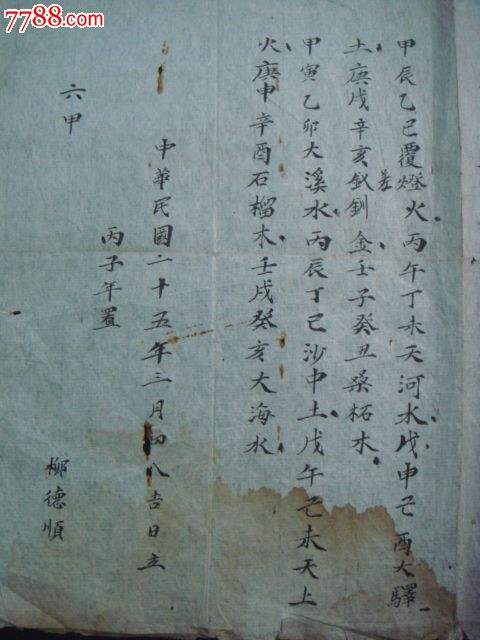 7788.com
甲辰乙巳覆燈火丙午丁未天河水戊申己酉大驛
差
土庚戌辛亥釵釧金壬子癸丑桑柘木
甲寅乙卯大溪水丙辰丁巳沙中土戊午己未天上
火庚申辛酉石榴木壬戌癸亥大海水
中華民國二十五年三月八吉日立
丙子年置
六甲
柳德順